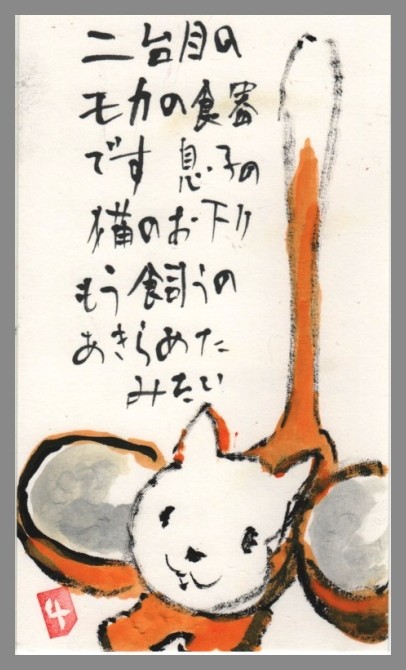 二台目の
モカの食器
です 息子の
猫のお下り
もう飼うの
あきらめた
みたい